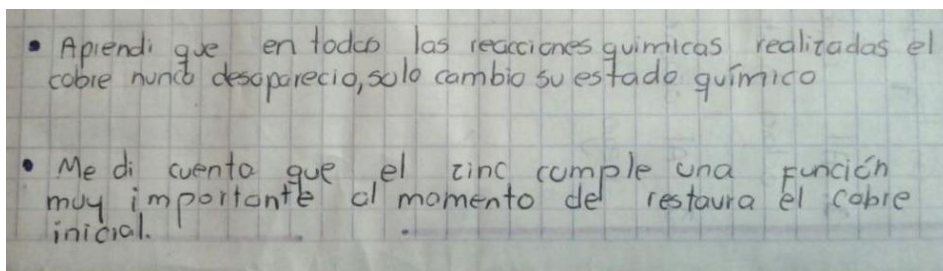 • Aprendi que en todas las reacciones quimicas realizadas el
cobre nunca desaparecio, solo cambio su estado químico
• Me di cuenta que el zinc cumple una función
muy importante al momento de restaura el cobre
inicial.